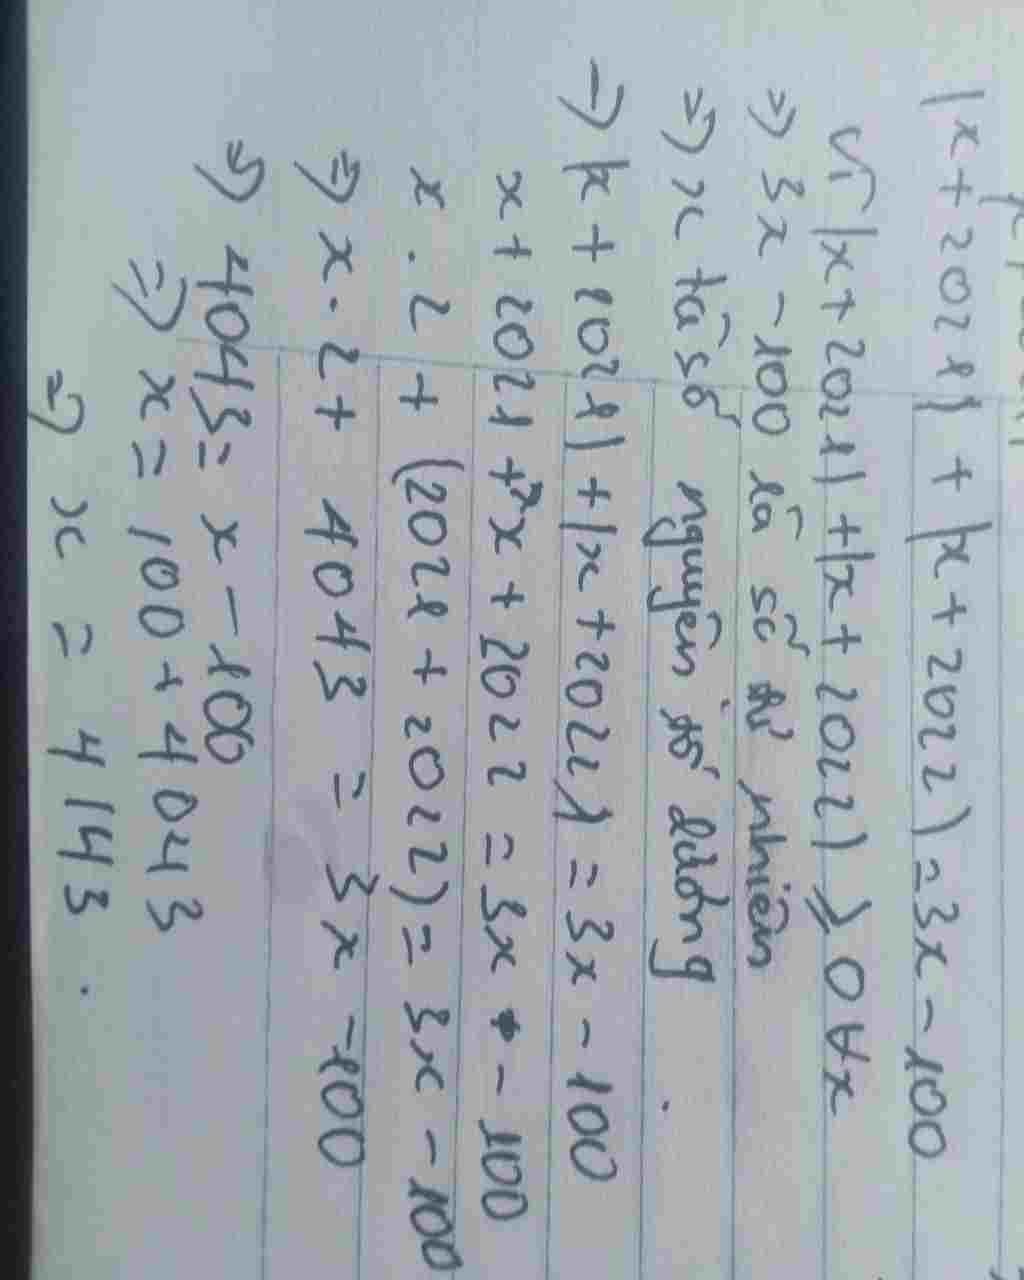 |x+2021| + |x+2022| = 3x - 100
Vì |x+2021| + |x+2022| ≥ 0 ∀x
=> 3x - 100 là số nhiên
=> x là số nguyên dương
=> |x+2021| + |x+2022| = 3x - 100
x + 2021 + x + 2022 = 3x - 100
x . 2 + (2021 + 2022) = 3x - 100
=> x . 2 + 4043 = 3x - 100
=> 4043 = x - 100
=> x = 100 + 4043
=> x = 4143.